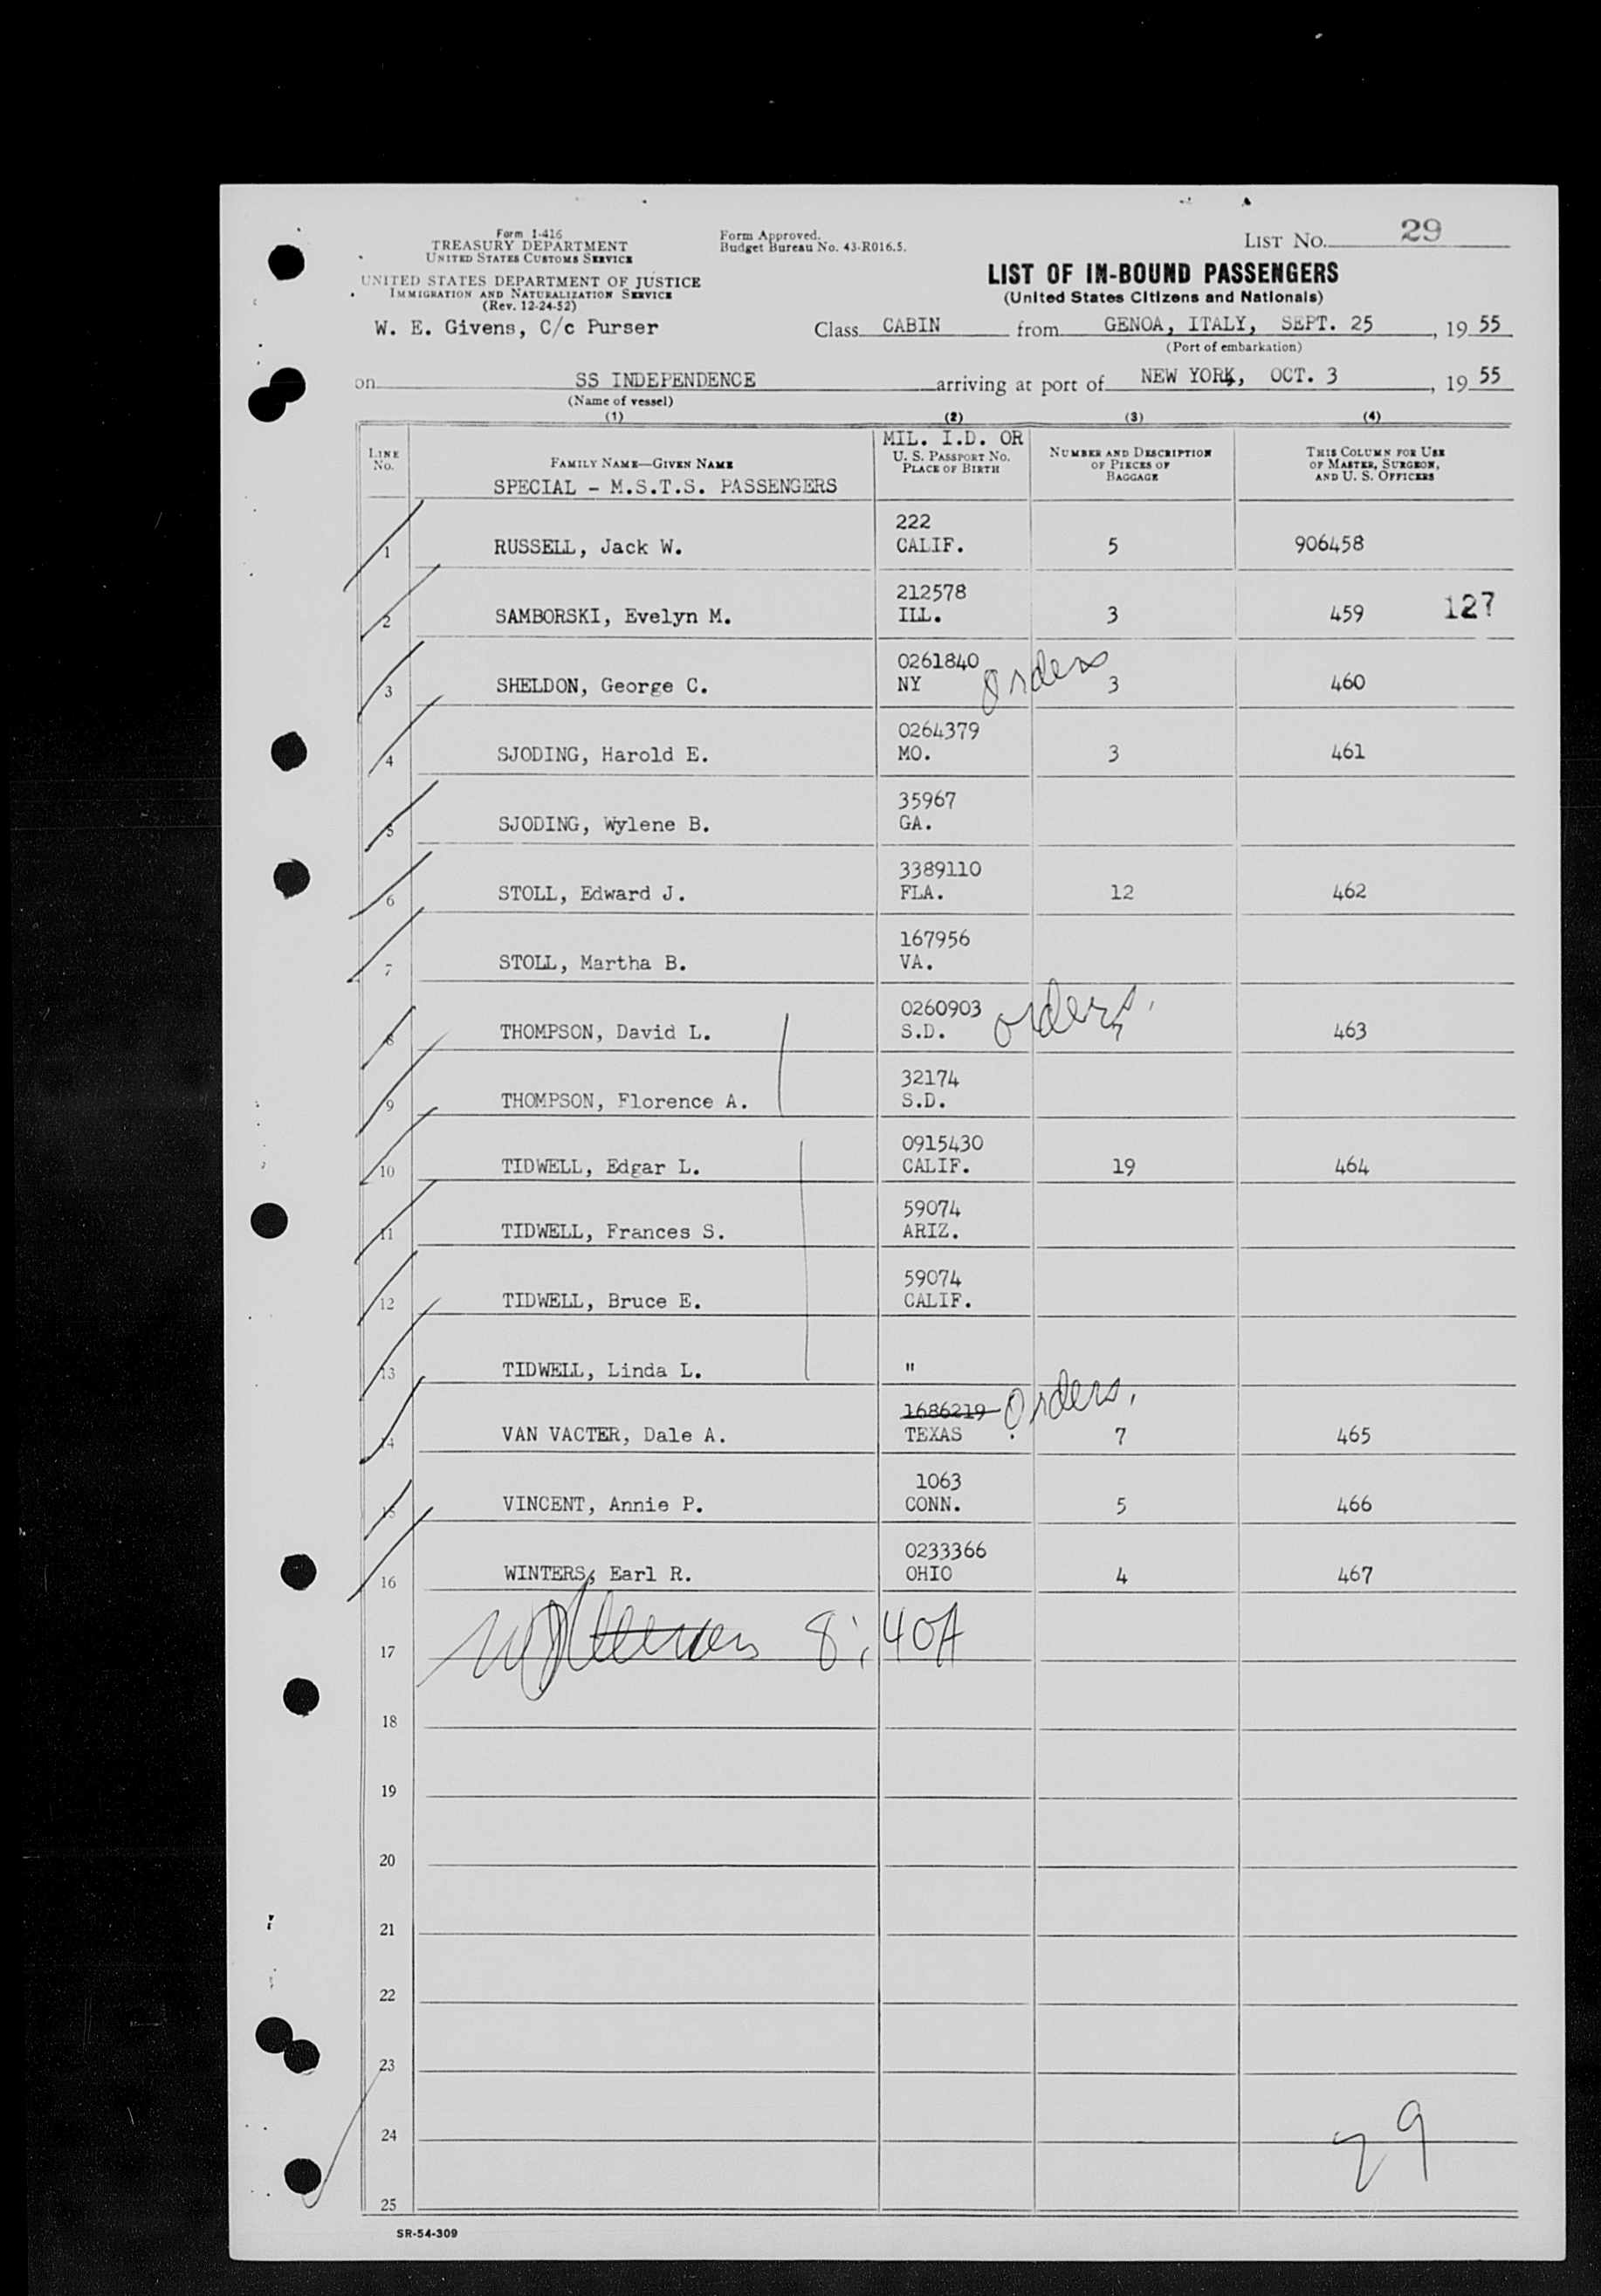 Form I-416
TREASURY DEPARTMENT
UNITED STATES CUSTOMS SERVICE
UNITED STATES DEPARTMENT OF JUSTICE
IMMIGRATION AND NATURALIZATION SERVICE
(Rev. 12-24-52)
Form Approved.
Budget Bureau No. 43-R016.5.
LIST NO. 29
LIST OF IN-BOUND PASSENGERS
(United States Citizens and Nationals)
W. E. Givens, C/c Purser
Class CABIN from GENOA, ITALY, SEPT. 25, 19 55
(Port of embarkation)
on SS INDEPENDENCE arriving at port of NEW YORK, OCT. 3, 19 55
(Name of vessel)
(1) (2) (3) (4)
LINE NO.
FAMILY NAME—GIVEN NAME
SPECIAL - M.S.T.S. PASSENGERS
MIL. I.D. OR
U. S. PASSPORT NO.
PLACE OF BIRTH
NUMBER AND DESCRIPTION
OF PIECES OF
BAGGAGE
THIS COLUMN FOR USE
OF MASTER, SURGEON,
AND U. S. OFFICERS
222
1 RUSSELL, Jack W. CALIF. 5 906458
212578
2 SAMBORSKI, Evelyn M. ILL. 3 459 127
0261840 orders
3 SHELDON, George C. NY 3 460
0264379
4 SJODING, Harold E. MO. 3 461
35967
5 SJODING, Wylene B. GA.
3389110
6 STOLL, Edward J. FLA. 12 462
167956
7 STOLL, Martha B. VA.
0260903 orders
8 THOMPSON, David L. S.D. 7 463
32174
9 THOMPSON, Florence A. S.D.
0915430
10 TIDWELL, Edgar L. CALIF. 19 464
59074
11 TIDWELL, Frances S. ARIZ.
59074
12 TIDWELL, Bruce E. CALIF.
13 TIDWELL, Linda L. "
1686219 Orders.
14 VAN VACTER, Dale A. TEXAS 7 465
1063
15 VINCENT, Annie P. CONN. 5 466
0233366
16 WINTERS, Earl R. OHIO 4 467
17 8:40A
18
19
20
21
22
23
24
29
25
SR-54-309